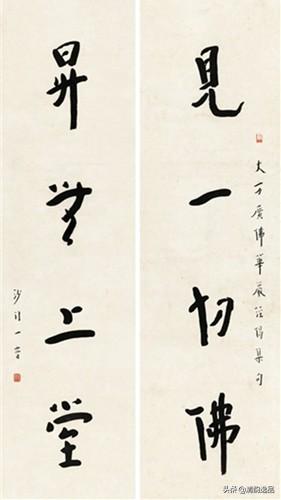 大方廣佛華嚴經偈集句
見一切佛
昇無上堂
沙門一音
头条